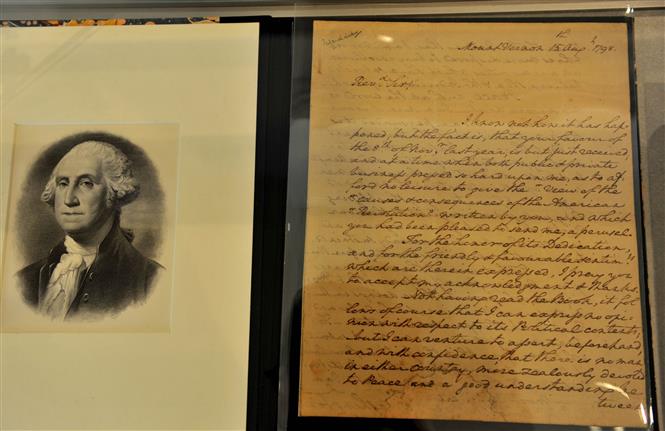 Mount Vernon 15th Augt. 1798.
Revd. Sir,
I know not how it has hap-
pened, but the fact is, that your favour of
the 8th of Novr. last year, is but just received
and at a time when both public & private
business pressed so hard upon me, as to af-
ford no leisure to give the "View of the
"causes & consequences of the American
"Revolution" written by you, and which
you had been pleased to send me, a perusal.
For the honor of its Dedication,
and for the friendly & favourable sentimts.
which are therein expressed, I pray you
to accept my acknowledgment & thanks.
Not having read the Book, it fol-
lows of course that I can express no opi-
nion with respect to its Political contents,
but I can venture to assert, beforehand,
and with confidence, that there is no man
in either country, more zealously devoted
to Peace and a good understanding be-
tween